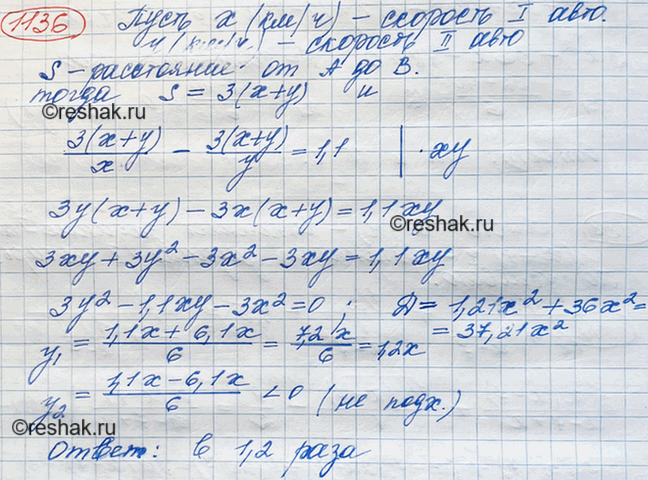 1136 Пусть x (км/ч) – скорость I авто.
y (км/ч) – скорость II авто
S – расстояние от A до B.
тогда S = 3(x+y) и
3(x+y)/x − 3(x+y)/y = 1,1 | · xy
3y(x+y) − 3x(x+y) = 1,1xy
©reshak.ru
©reshak.ru
3xy + 3y² − 3x² − 3xy = 1,1xy
3y² − 1,1xy − 3x² = 0 . D = 1,21x² + 36x² =
= 37,21x²
y₁ = (1,1x + 6,1x)/6 = 7,2x/6 = 1,2x
©reshak.ru
y₂ = (1,1x − 6,1x)/6 < 0 (не подх.)
©reshak.ru
©reshak.ru
Ответ: в 1,2 раза